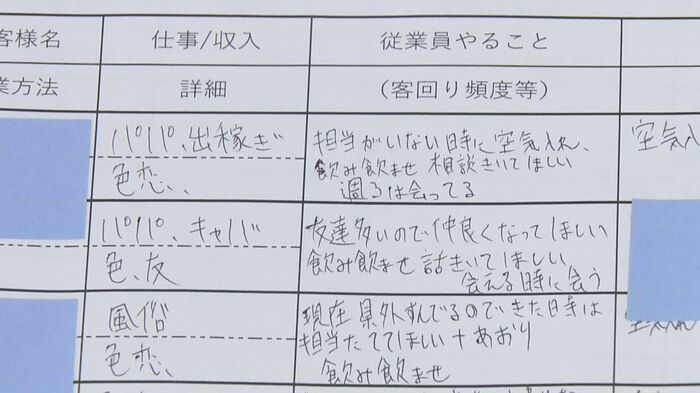 客様名 仕事/収入 従業員やること
業方法 詳細 (客回り頻度等)
パパ、出稼ぎ 担当がいない時に空気入れ、 空気入
色恋、、 飲み飲ませ 相談きいてほしい
週3は会ってる
パパ、キャバ 友達多いので仲良くなってほしい
色、友 飲み飲ませ 話きいてほしい
会える時に会う
風俗 現在県外すんでるのできた日寺は
色恋、 担当たててほしい+あおり
飲み飲ませ